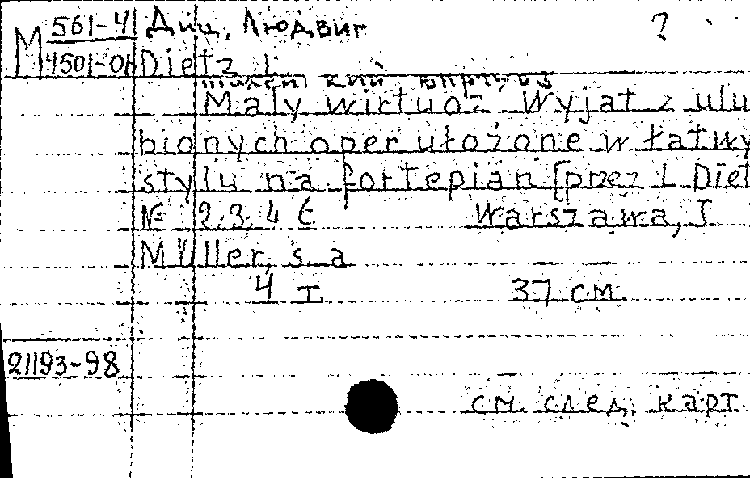 М 561-4 Диц, Людвиг ?
1501-06 Dietz L
Маленький виртуоз
Maly wirtuoz Wyjat z ulu
bionych oper ułożone w łatwy
stylu na fortepian [przez L Diet
№ 2.3.4 6 Warszawa, J
Müller, s a
4 т 37 см.
21193-98
см. след. карт